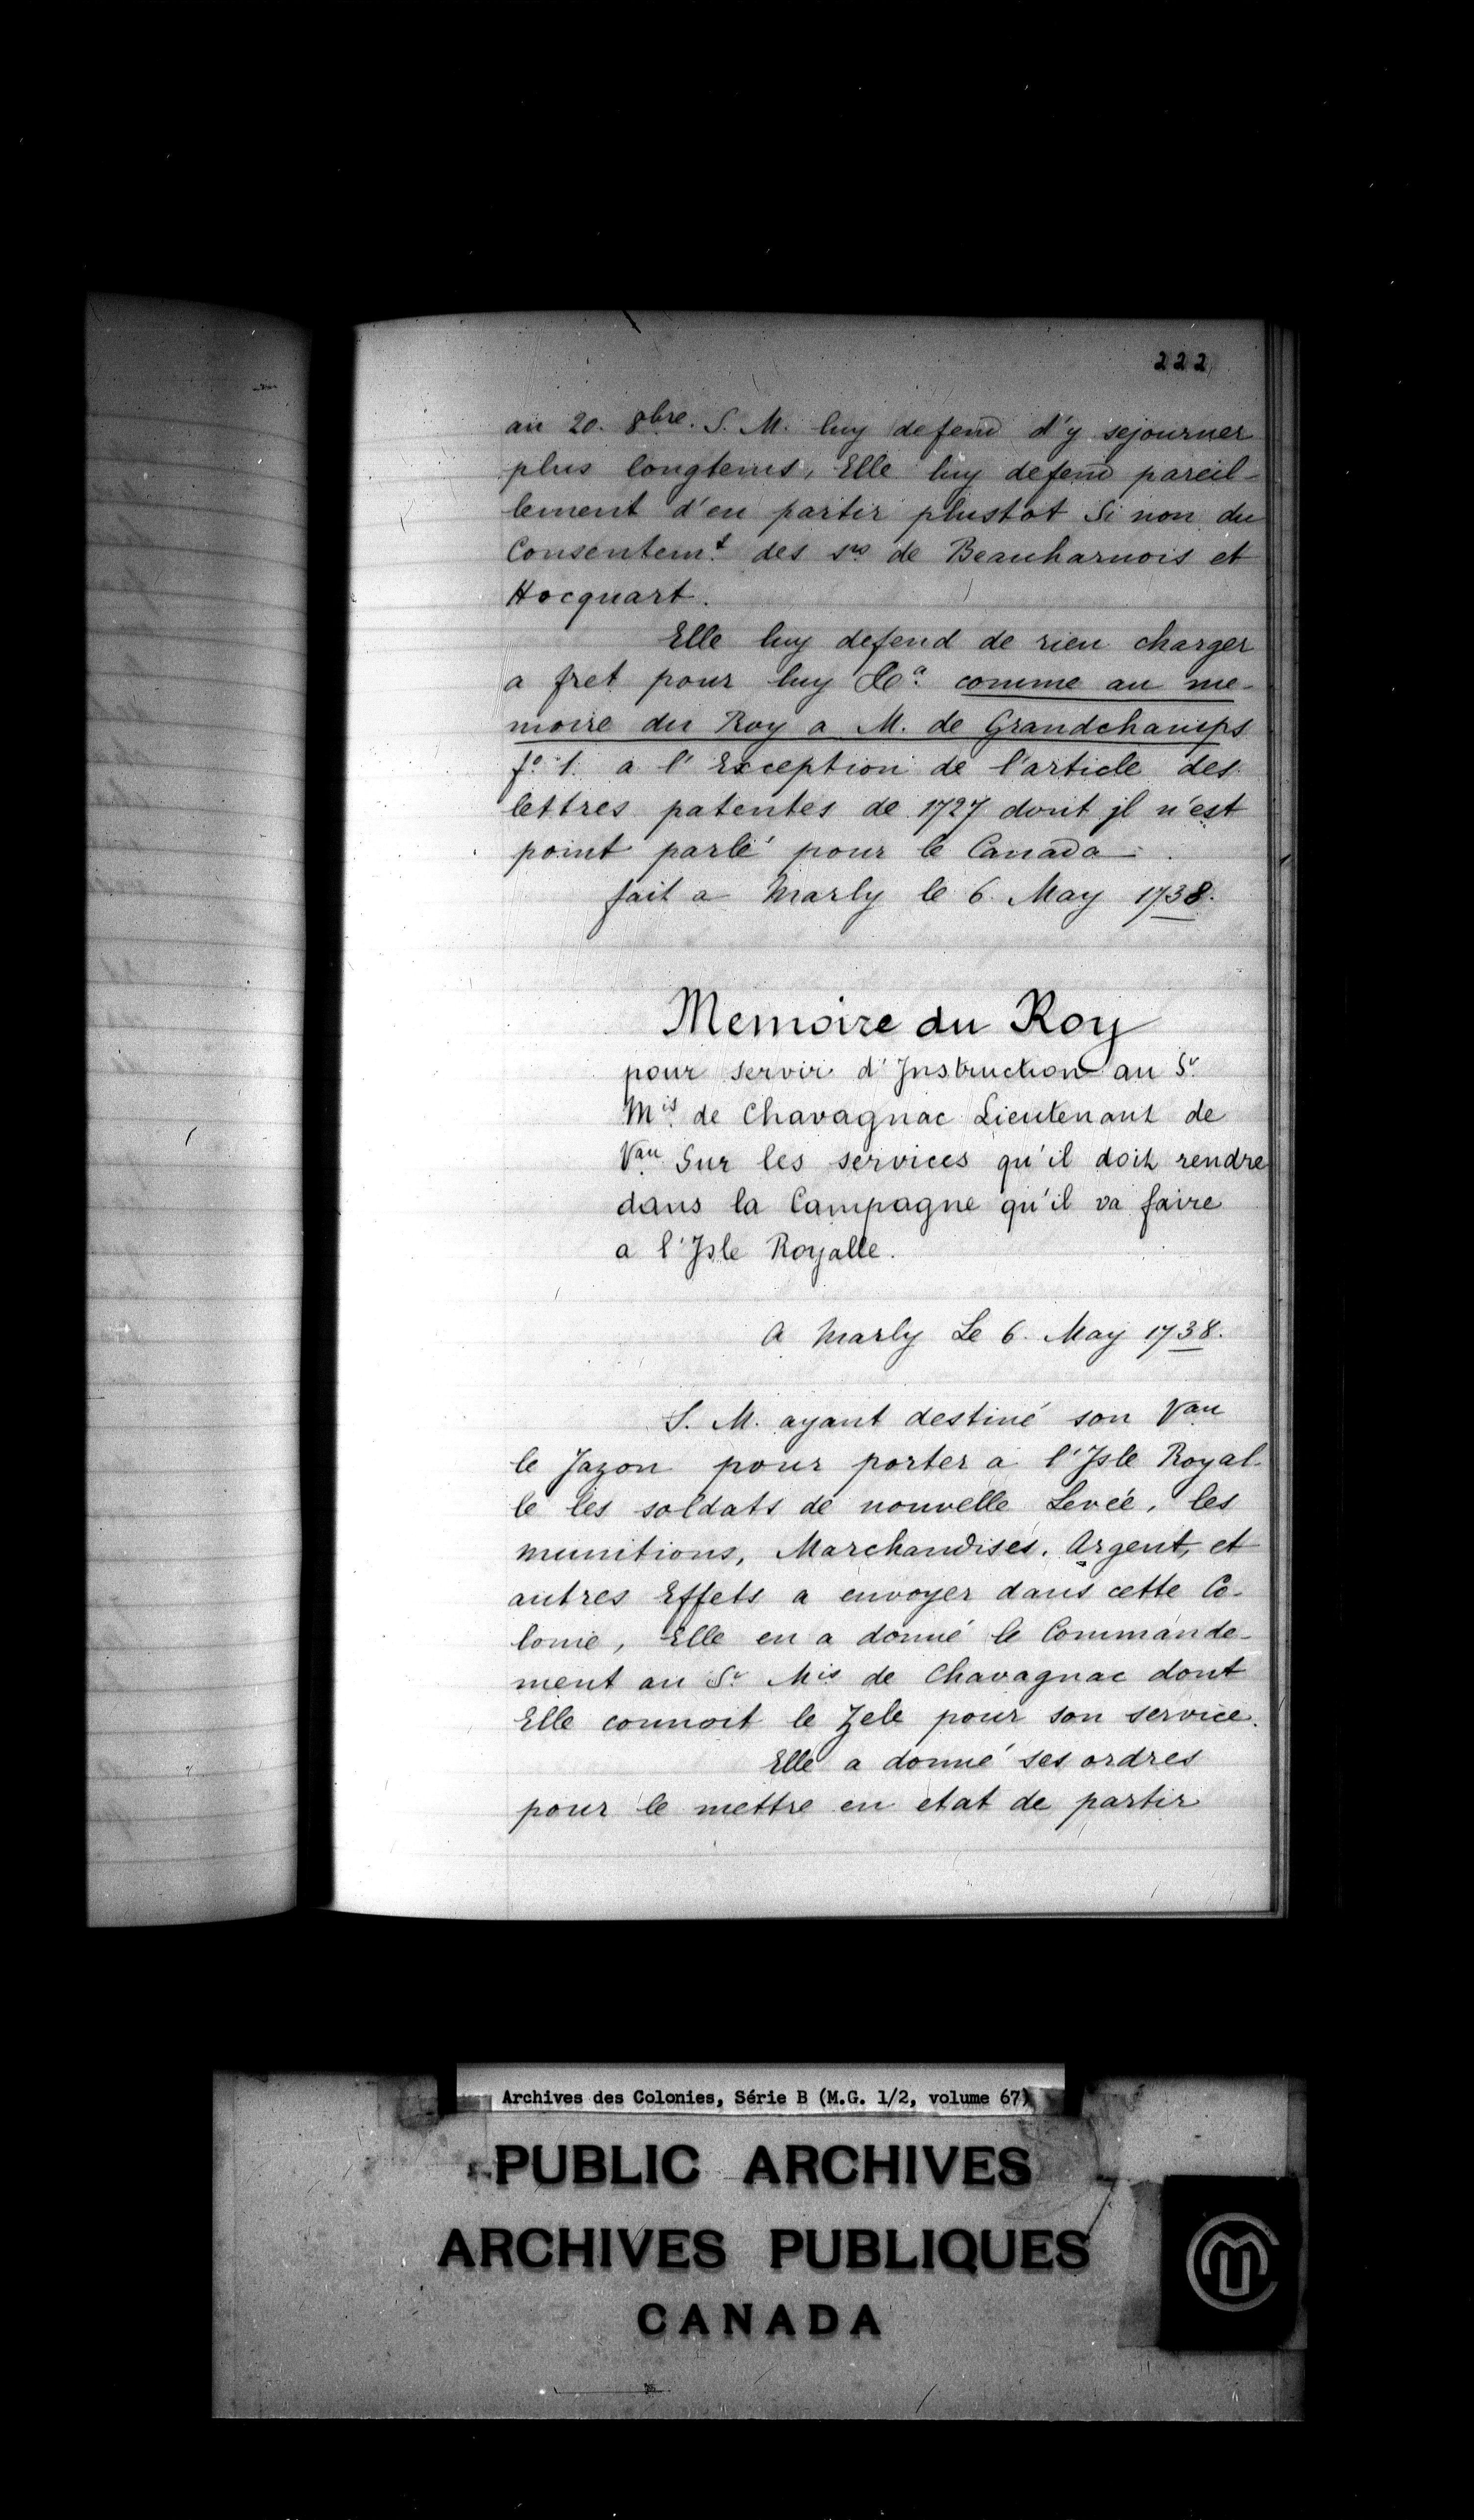 222
au 20. 8bre. S. M. luy defend d'y sejourner
plus longtems, Elle luy defend pareil-
lement d'en partir plustot Si non du
Consentemt. des srs de Beauharnois et
Hocquart.
Elle luy defend de rien charger
a fret pour luy &ca. comme au me-
moire du Roy a M. de Grandchamps
fo. 1. a l'Exception de l'article des
lettres patentes de 1727 dont jl n'est
point parlé pour le Canada.
fait a Marly le 6. May 1738.
Memoire du Roy
pour servir d'Jnstruction au Sr.
Mis. de Chavagnac Lieutenant de
Vau Sur les services qu'il doit rendre
dans la Campagne qu'il va faire
a l'Jsle Royalle.
A Marly Le 6. May 1738.
S. M. ayant destiné son Vau
le Jazon pour porter a l'Jsle Royal-
le les soldats de nouvelle Levée, les
munitions, Marchandises, Argent, et
autres Effets a envoyer dans cette Co-
lonie, Elle en a donné le Commande-
ment au Sr. Mis de Chavagnac dont
Elle connoit le Zele pour son service.
Elle a donné ses ordres
pour le mettre en etat de partir
Archives des Colonies, Série B (M.G. 1/2, volume 67)
PUBLIC ARCHIVES
ARCHIVES PUBLIQUES
CANADA